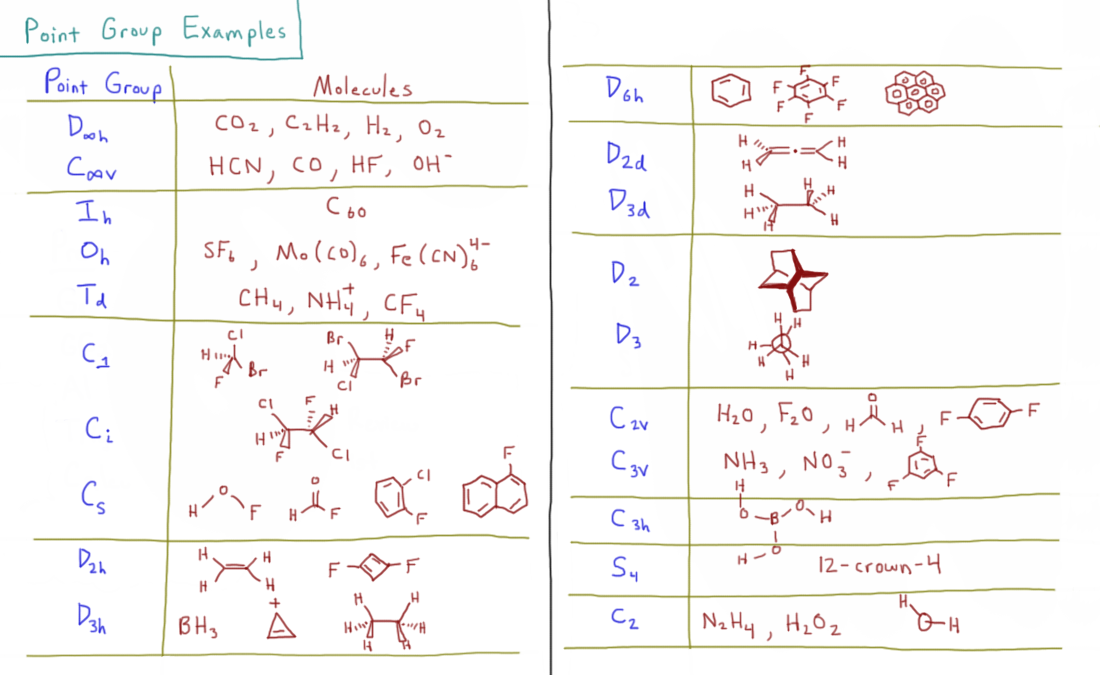 Point Group Examples
Point Group Molecules
D∞h CO2, C2H2, H2, O2
C∞v HCN, CO, HF, OH⁻
Ih C60
Oh SF6, Mo(CO)6, Fe(CN)6⁴⁻
Td CH4, NH4⁺, CF4
C1 Cl H F Br Br H F H Cl Br
Ci Cl F H H F Cl
Cs H O F O H F Cl F F
D2h H H H H F F
D3h BH3 + H H H H H H
D6h F F F F F F
D2d H H H H
D3d H H H H H H
D2
D3 H H H H H H
C2v H2O, F2O, O H H, F F
C3v NH3, NO3⁻, F F F
C3h H O B O H O H
S4 12-crown-4
C2 N2H4, H2O2 H O H